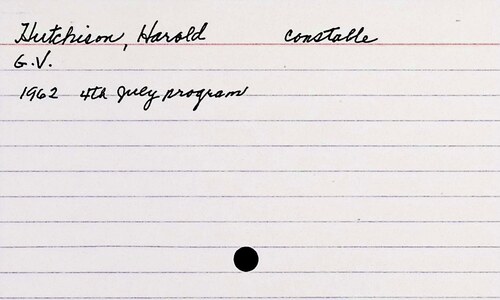 Hutchison, Harold constable
G.V.
1962 4th July program